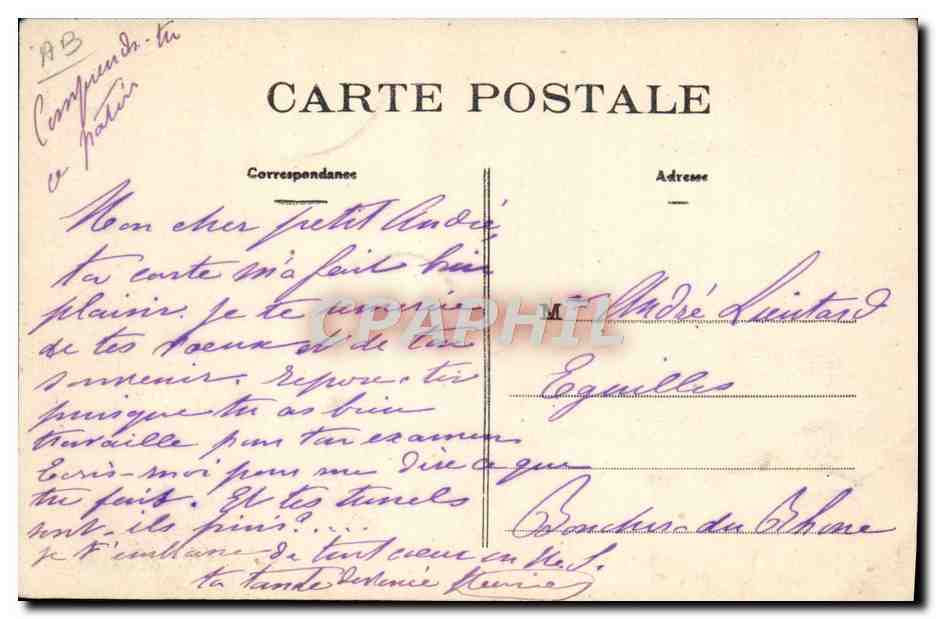 AB
Comprends-tu
ce patin
CARTE POSTALE
Correspondance
Adresse
Mon cher petit André,
ta carte m'a fait bien
plaisir. Je te remercie
de tes voeux et de ton
souvenir. Repose-toi
puisque tu as bien
travaillé pour ton examen
Ecris-moi pour me dire ce que
tu fais. Et tes tunnels
sont-ils finis?....
Je t'embrasse de tout coeur en N. S.
ta tante
M André Lieutard
Eguilles
Bouches-du-Rhône
CPAPHIL